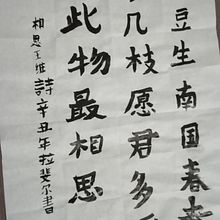 豆生南国春
几枝愿君多
此物最相思
相思王维詩辛丑年拉斐尔書